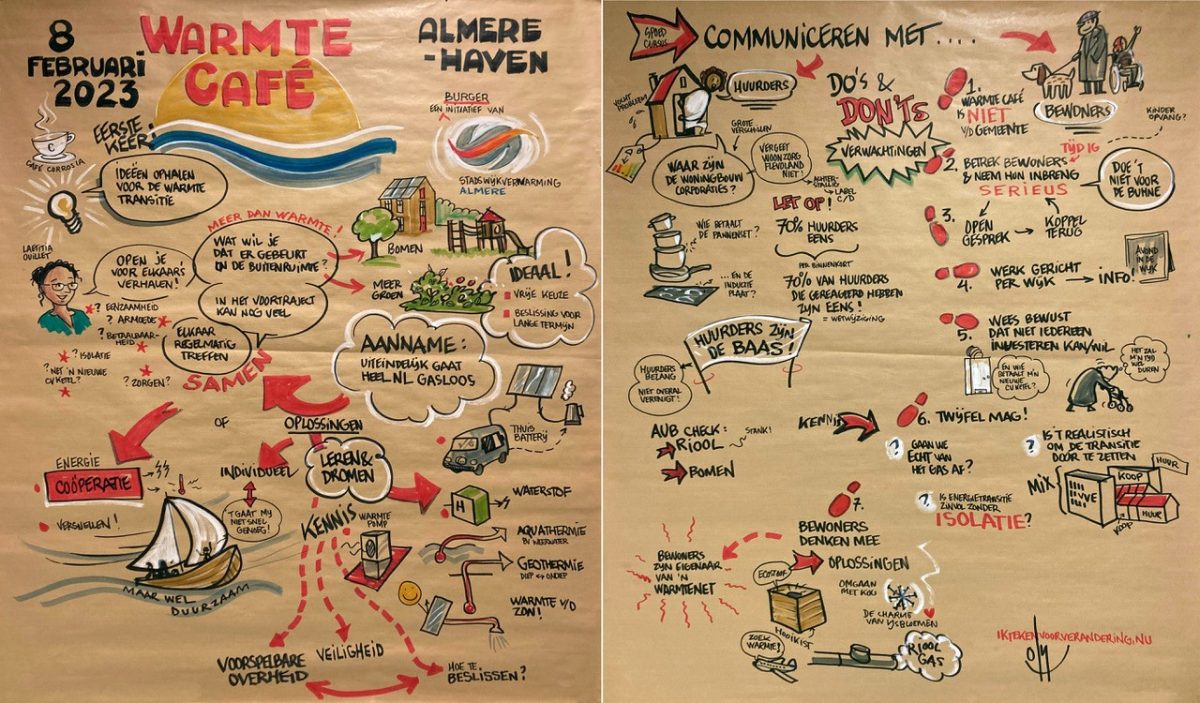 8
FEBRUARI
2023
WARMTE
CAFÉ
ALMERE
-HAVEN
CAFÉ CORROSIA
EERSTE
KEER:
IDEËEN OPHALEN
VOOR DE WARMTE
TRANSITIE
BURGER
EEN INITIATIEF VAN
STADSWIJKVERWARMING
ALMERE
LAETITIA
OUILLET
OPEN JE
VOOR ELKAARS
VERHALEN!
? EENZAAMHEID
? ARMOEDE
? BETAALBAAR-
HEID
? ISOLATIE
? NET 'N NIEUWE
CV KETEL?
? ZORGEN?
MEER DAN WARMTE!
WAT WIL JE
DAT ER GEBEURT
IN DE BUITENRUIMTE?
IN HET VOORTRAJECT
KAN NOG VEEL
ELKAAR
REGELMATIG
TREFFEN
SAMEN
BOMEN
MEER
GROEN
IDEAAL!
VRIJE KEUZE
BESLISSING VOOR
LANGE TERMIJN
AANNAME:
UITEINDELIJK GAAT
HEEL NL GASLOOS
OF
OPLOSSINGEN
THUIS
BATTERIJ
ENERGIE
COÖPERATIE
VERSNELLEN!
INDIVIDUEEL
'T GAAT MIJ
NIET SNEL
GENOEG!
LEREN &
DROMEN
KENNIS
WARMTE
POMP
H
WATERSTOF
AQUATHERMIE
BV WEERWATER
GEOTHERMIE
DIEP <-> ONDIEP
WARMTE V/D
ZON!
MAAR WEL
DUURZAAM
VOORSPELBARE
OVERHEID
VEILIGHEID
HOE TE
BESLISSEN?
SPOED
CURSUS
COMMUNICEREN MET....
VOCHT
PROBLEEM
HUURDERS
DO'S &
DON'TS
VERWACHTINGEN
GROTE
VERSCHILLEN
WAAR ZIJN
DE WONINGBOUW
CORPORATIES?
VERGEET
WOONZORG
FLEVOLAND
NIET!
ACHTER-
STALLIG
LABEL
C/D
LET OP!
70% HUURDERS
EENS
PER BINNENKORT
70% VAN HUURDERS
DIE GEREAGEERD HEBBEN
ZIJN EENS!
= WETWIJZIGING
WIE BETAALT
DE PANNENSET?
... EN DE
INDUCTIE
PLAAT?
HUURDERS ZIJN
DE BAAS!
HUURDERS
BELANG
NIET OVERAL
VERENIGT!
AUB CHECK:
RIOOL
STANK!
BOMEN
BEWONERS
KINDER
OPVANG?
1.
WARMTE CAFÉ
IS NIET
V/D GEMEENTE
TIJDIG
2. BETREK BEWONERS
& NEEM HUN INBRENG
SERIEUS
DOE 'T
NIET VOOR
DE BÜHNE
3.
OPEN
GESPREK
KOPPEL
TERUG
4.
WERK GERICHT
PER WIJK
INFO!
AVOND
IN DE
WIJK
5.
WEES BEWUST
DAT NIET IEDEREEN
INVESTEREN KAN/WIL
EN WIE
BETAALT M'N
NIEUWE
CV KETEL?
HET ZAL
M'N TIJD
WEL
DUREN
KENNIS
6. TWIJFEL MAG!
? GAAN WE
ECHT VAN
HET GAS AF?
? IS 'T REALISTISCH
OM DE TRANSITIE
DOOR TE ZETTEN
? IS ENERGIETRANSITIE
ZINVOL ZONDER
ISOLATIE?
MIX
VVE
KOOP
HUUR
KOOP
HUUR
7.
BEWONERS
DENKEN MEE
OPLOSSINGEN
BEWONERS
ZIJN EIGENAAR
VAN 'N
WARMTENET
ECOSTOOF
HOOIKIST
OMGAAN
MET KOU
DE CHARME
VAN IJSBLOEMEN
ZOEK
WARMTE!
RIOOL
GAS
IKTEKENVOORVERANDERING.NU